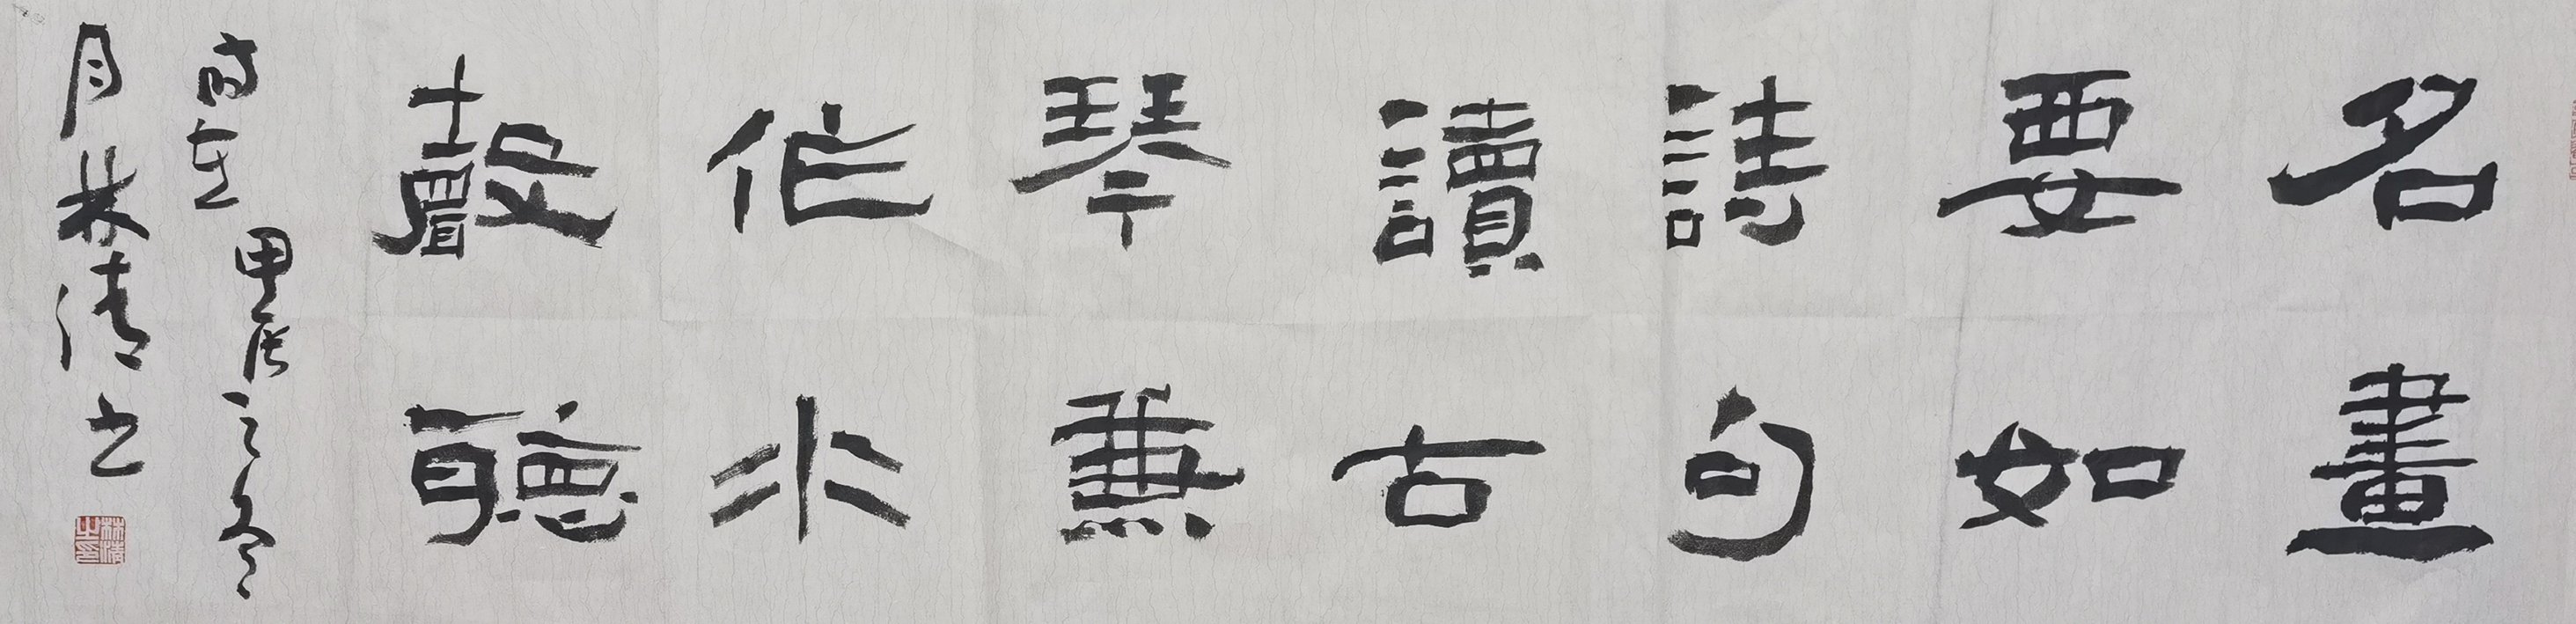 名畫
要如
詩句
讀古
琴兼
作水
聲聽
時在甲辰之冬
月林清书
林清之印